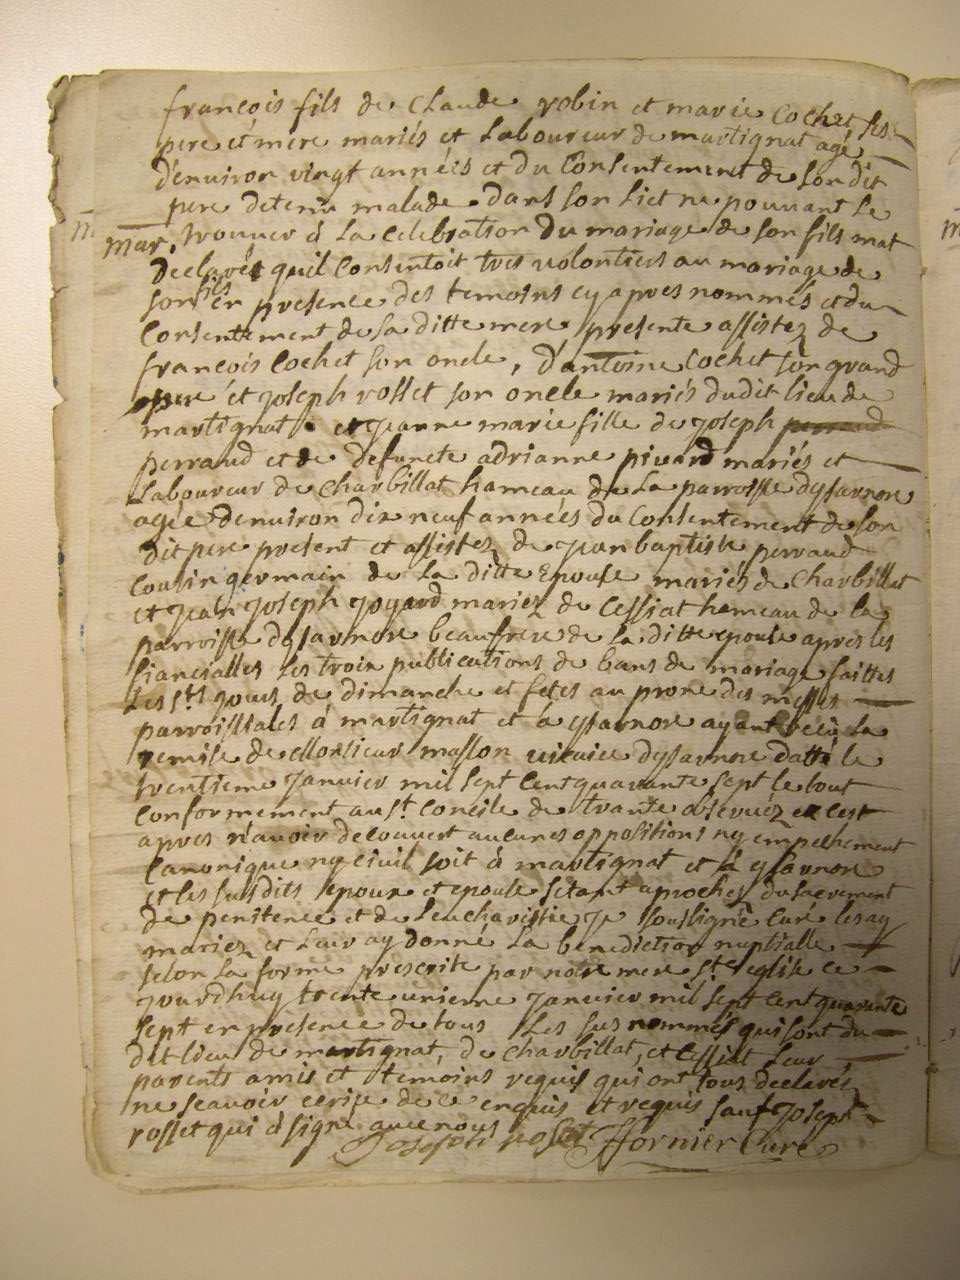 francois fils de Claude robin et marie Cochet ses
pere et mere mariés et Laboureur de martignat agé
d'environ vingt années et du Consentement de son dit
pere detenu malade dans son lict ne pouvant se
mar. trouver á La celebration du mariage de son fils mat
declaré quil Consentoit tres volontiers au mariage de
son fils en presence des temoins cy apres nommés et du
Consentement de sa ditte mere presente assistez de
francois Cochet son oncle, d'antoine Cochet son grand
pere et joseph rosset son oncle mariés dudit lieu de
martignat. et jeanne marie fille de joseph perraud
perraud et de defuncte adrianne pivard mariés et
Laboureur de Charbillat hameau de La parroisse dysarnore
agée denviron dix neuf années du Consentement de son
dit pere present et assistez de jean baptiste perraud
Cousin germain de la ditte Epouse mariés de Charbillat
et jean joseph jogard mariez de Cessiat hameau de la
parroisse dysarnore beaufrere de la ditte epouse apres les
fiancialles les trois publications de bans de mariage faittes
Les sts jours de dimanche et fetes au prone des messes
parroissiales á martignat et á ysarnore ayant recu la
remise de Monsieur masson vicaire dysarnore datté le
trentieme janvier mil sept cent quarante sept le tout
conformement au st. Concile de trante observéz et cest
apres n'avoir decouvert aucunes oppositions ny empechement
Canonique ny civil soit á martignat et á ysarnore
et les susdits epoux et epouse setant aprochez du sacrement
de penitence et de Leucharistie je soussigné Curé les ay
mariez et Leur ay donné La benediction nuptialle
selon La forme prescrite par notre mere Ste eglise ce
jourdhuy trente unieme janvier mil sept cent quarante
sept en presence de tous Les sus nommés qui sont du
dit lieu de martignat, de Charbillat, et Cessiat Leur
parents amis et temoins requis qui ont tous declarés
ne scavoir ecrire de ce enquis et requis sauf joseph
rosset qui á signé avec nous
Joseph roset ffornier Curé